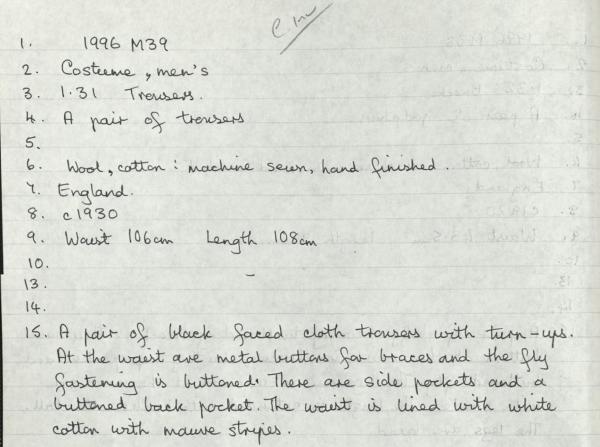 1. 1996 M39
2. Costume, men's
3. 1.31 Trousers.
4. A pair of trousers
5.
6. Wool, cotton: machine sewn, hand finished.
7. England.
8. c1930
9. Waist 106cm Length 108cm
10. –
13.
14.
15. A pair of black faced cloth trousers with turn-ups.
At the waist are metal buttons for braces and the fly
fastening is buttoned. There are side pockets and a
buttoned back pocket. The waist is lined with white
cotton with mauve stripes.